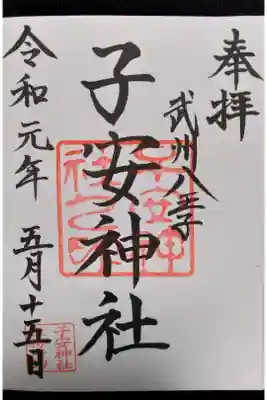 奉拝
武州八王子
子安神社
令和元年 五月十五日
子安神
社之印
子安神社